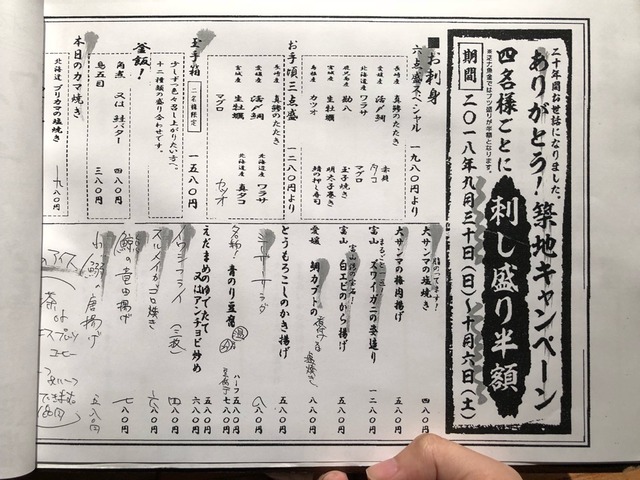 二十年間お世話になりました
ありがとう！築地キャンペーン
四名様ごとに刺し盛り半額
期間 二〇一八年九月三十日（日）〜十月六日（土）
■お刺身
六点盛スペシャル 一九八〇円より
長崎産 真鯵のたたき
愛媛産 活〆鯛
北海道産 ワラサ
鹿児島産 勘八
宮城産 生牡蠣
カツオ
赤貝
タコ
マグロ
玉子焼き
明太子巻き
鯖の押し寿司
お手頃三点盛 一二八〇円より
長崎産 真鯵のたたき
愛媛産 活〆鯛
宮城産 生牡蠣
マグロ
北海道産 ワラサ
北海道産 真タコ
カツオ
玉手箱 二名様限定 一五八〇円
少しずつ色々召し上がりたい方へ、
十二種類の盛り合わせです。
釜飯！
角煮 又は 鮭バター 四八〇円
鳥五目 三八〇円
本日のカマ焼き
北海道 ブリカマの塩焼き 九八〇円
脂のってます！
大サンマの塩焼き 四八〇円
大サンマの梅肉揚げ 五八〇円
まるごと一匹！
富山 ズワイガニの姿造り 一二八〇円
富山湾の宝石！
富山 白エビのから揚げ 五八〇円
愛媛 鯛カブトの 塩焼き 八八〇円
とうもろこしのかき揚げ 五八〇円
シーザーサラダ 八八〇円
名物！ 青のり豆腐 ハーフ 五八〇円
七八〇円
えだまめのゆでたて 五八〇円
又はアンチョビ炒め 六八〇円
イワシフライ（二枚） 四八〇円
スルメイカゴロ焼き 六八〇円
鯨の竜田揚げ 七八〇円
唐揚げ 五八〇円
アイス
茶 or
コーヒー